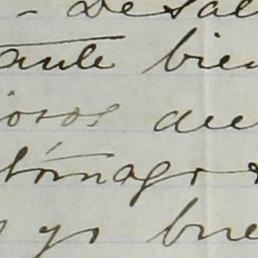 - De sal
ante bien
iosos de
tómago
yo bue